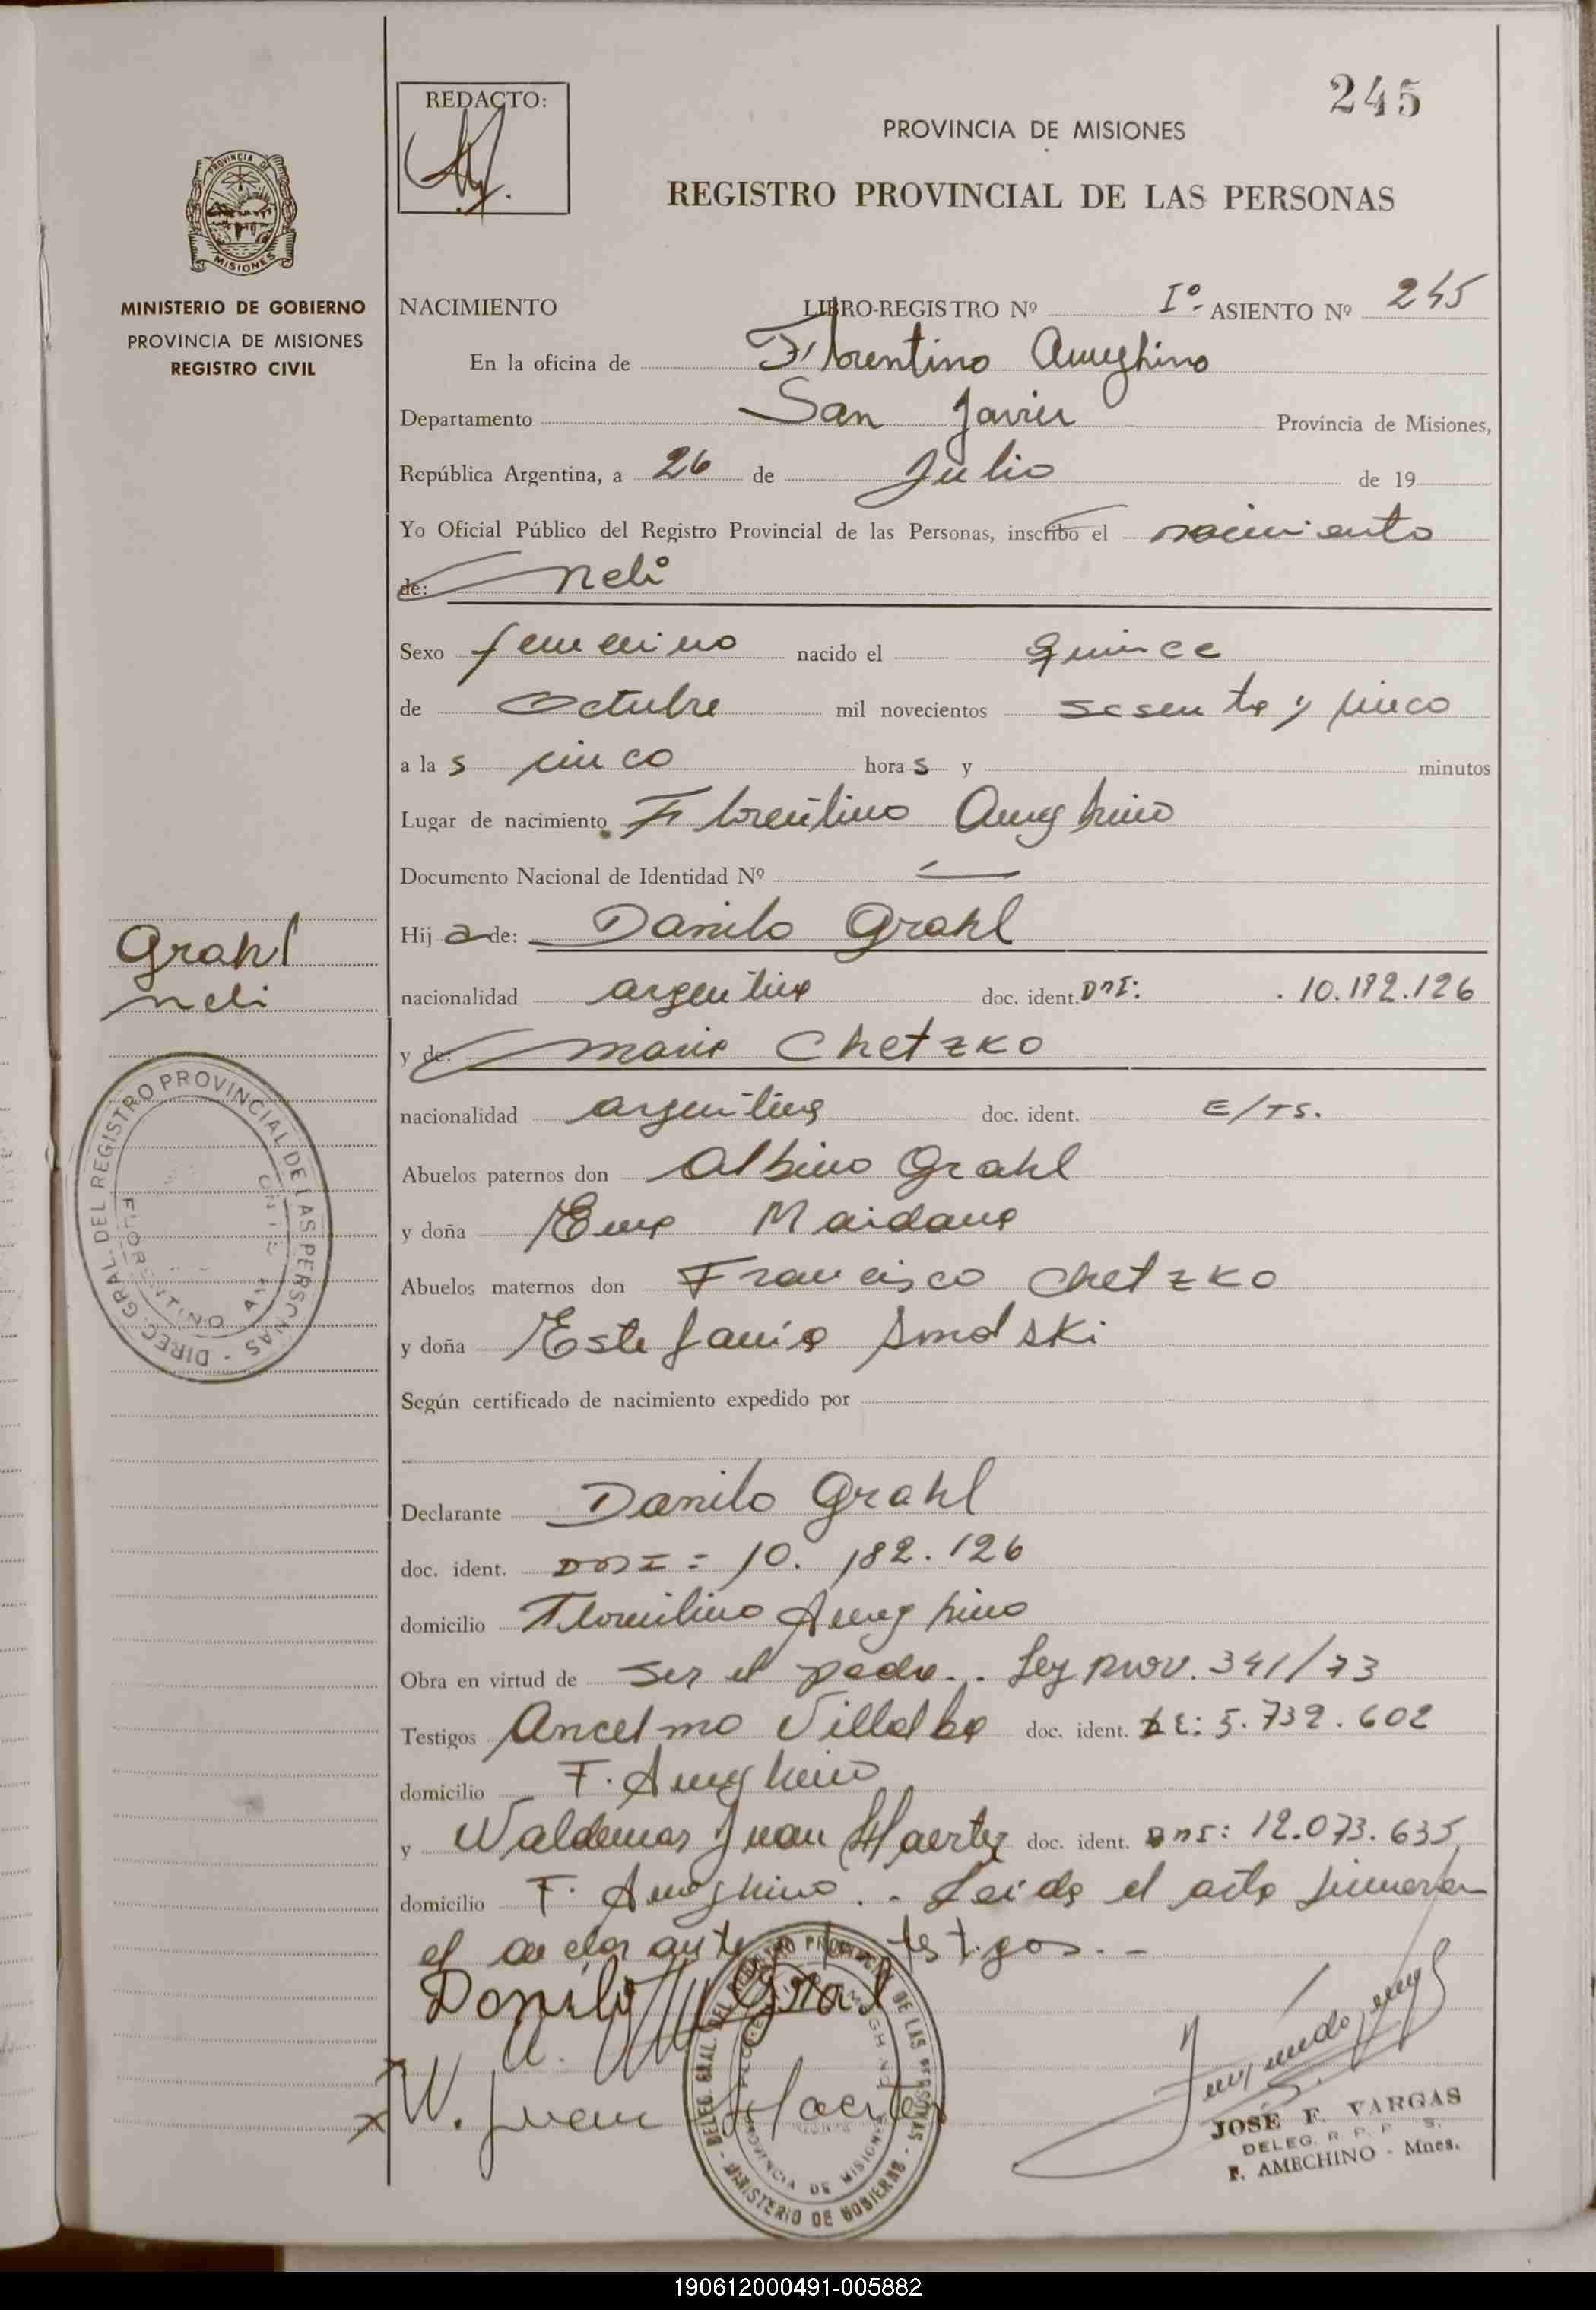 245
REDACTO:
PROVINCIA DE MISIONES
REGISTRO PROVINCIAL DE LAS PERSONAS
PROVINCIA DE MISIONES
MINISTERIO DE GOBIERNO
PROVINCIA DE MISIONES
REGISTRO CIVIL
NACIMIENTO LIBRO-REGISTRO Nº Iº- ASIENTO Nº 245
En la oficina de Florentino Ameghino
Departamento San Javier Provincia de Misiones,
República Argentina, a 26 de Julio de 19
Yo Oficial Público del Registro Provincial de las Personas, inscribo el nacimiento
de: Neli
Sexo femenino nacido el quince
de Octubre mil novecientos sesenta y cinco
a las cinco horas y minutos
Lugar de nacimiento Florentino Ameghino
Documento Nacional de Identidad Nº —
Hija de: Danilo Grahl
nacionalidad argentina doc. ident. DNI: 10.182.126
y de: Maria Chetzko
nacionalidad argentina doc. ident. E/TS.
Abuelos paternos don Albino Grahl
y doña Ema Maidana
Abuelos maternos don Francisco Chetzko
y doña Estefania Smolski
Según certificado de nacimiento expedido por
Declarante Danilo Grahl
doc. ident. DNI = 10.182.126
domicilio Florentino Ameghino
Obra en virtud de ser el padre.. Ley Prov. 341/73
Testigos Ancelmo Villalba doc. ident. LE: 5.739.602
domicilio F. Ameghino
y Waldemar Juan Haerter doc. ident. DNI: 12.073.635
domicilio F. Ameghino.- Leida el acta firmaran
el declarante testigos.-
Grahl
Neli
DIREC. GRAL. DEL REGISTRO PROVINCIAL DE LAS PERSONAS
FLORENTINO
Danilo Grahl
W. Juan Haerter
DELEG. GRAL. DEL REGISTRO PROVINCIAL DE LAS PERSONAS - MINISTERIO DE GOBIERNO
PROVINCIA DE MISIONES
JOSE F. VARGAS
DELEG. R. P. P. S.
F. AMECHINO - Mnes.
190612000491-005882